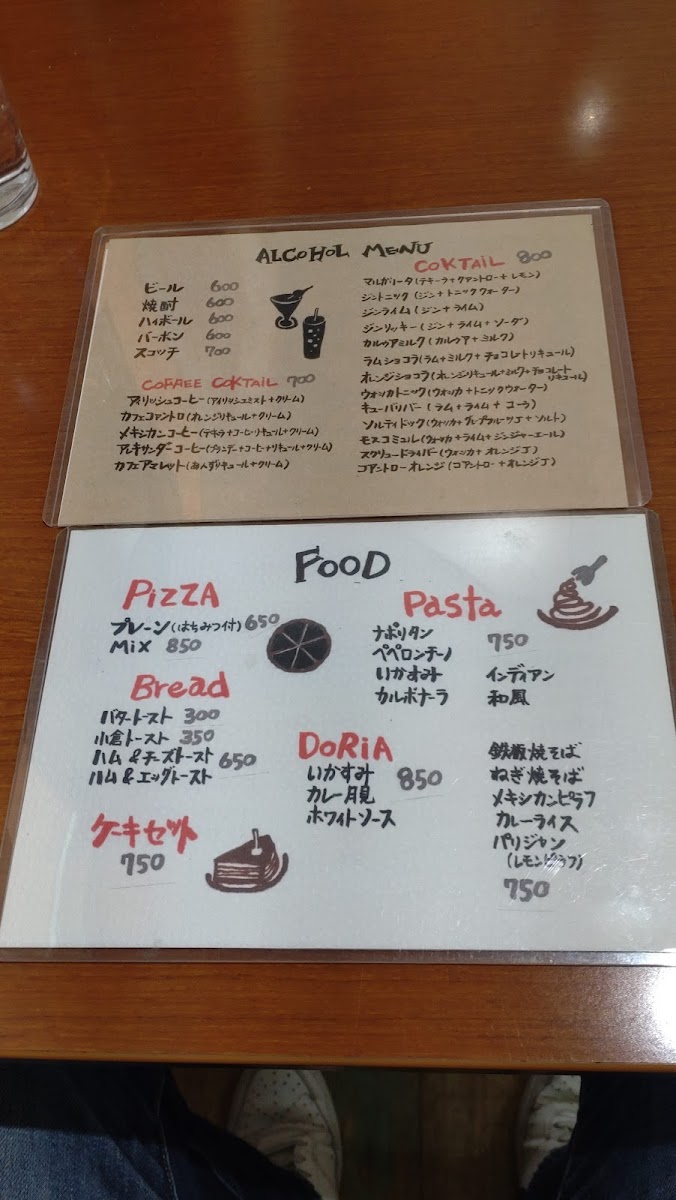 ALCOHOL MENU
ビール 600
焼酎 600
ハイボール 600
バーボン 600
スコッチ 700
COFFEE COKTAIL 700
アイリッシュコーヒー(アイリッシュミスト+クリーム)
カフェコアントロ(オレンジリキュール+クリーム)
メキシカンコーヒー(テキーラ+コーヒーリキュール+クリーム)
アレキサンダーコーヒー(ブランデー+コーヒーリキュール+クリーム)
カフェアマレット(あんずリキュール+クリーム)
COKTAIL 800
マルガリータ(テキーラ+クアントロー+レモン)
ジントニック(ジン+トニックウォーター)
ジンライム(ジン+ライム)
ジンリッキー(ジン+ライム+ソーダ)
カルゥアミルク(カルゥア+ミルク)
ラムショコラ(ラム+ミルク+チョコレートリキュール)
オレンジショコラ(オレンジリキュール+ミルク+チョコレート
リキュール)
ウォッカトニック(ウォッカ+トニックウォーター)
キューバリバー(ラム+ライム+コーラ)
ソルティドック(ウォッカ+グレープフルーツJ+ソルト)
モスコミュル(ウォッカ+ライム+ジンジャーエール)
スクリュードライバー(ウォッカ+オレンジJ)
コアントローオレンジ(コアントロー+オレンジJ)
FOOD
PiZZA
プレーン(はちみつ付) 650
Mix 850
Bread
バタートースト 300
小倉トースト 350
ハム&チーズトースト 650
ハム&エッグトースト
ケーキセット
750
Pasta
ナポリタン 750
ペペロンチーノ
いかすみ インディアン
カルボナーラ 和風
DORiA
いかすみ 850
カレー月見
ホワイトソース
鉄板焼そば
ねぎ焼そば
メキシカンピラフ
カレーライス
パリジャン
(レモンピラフ)
750